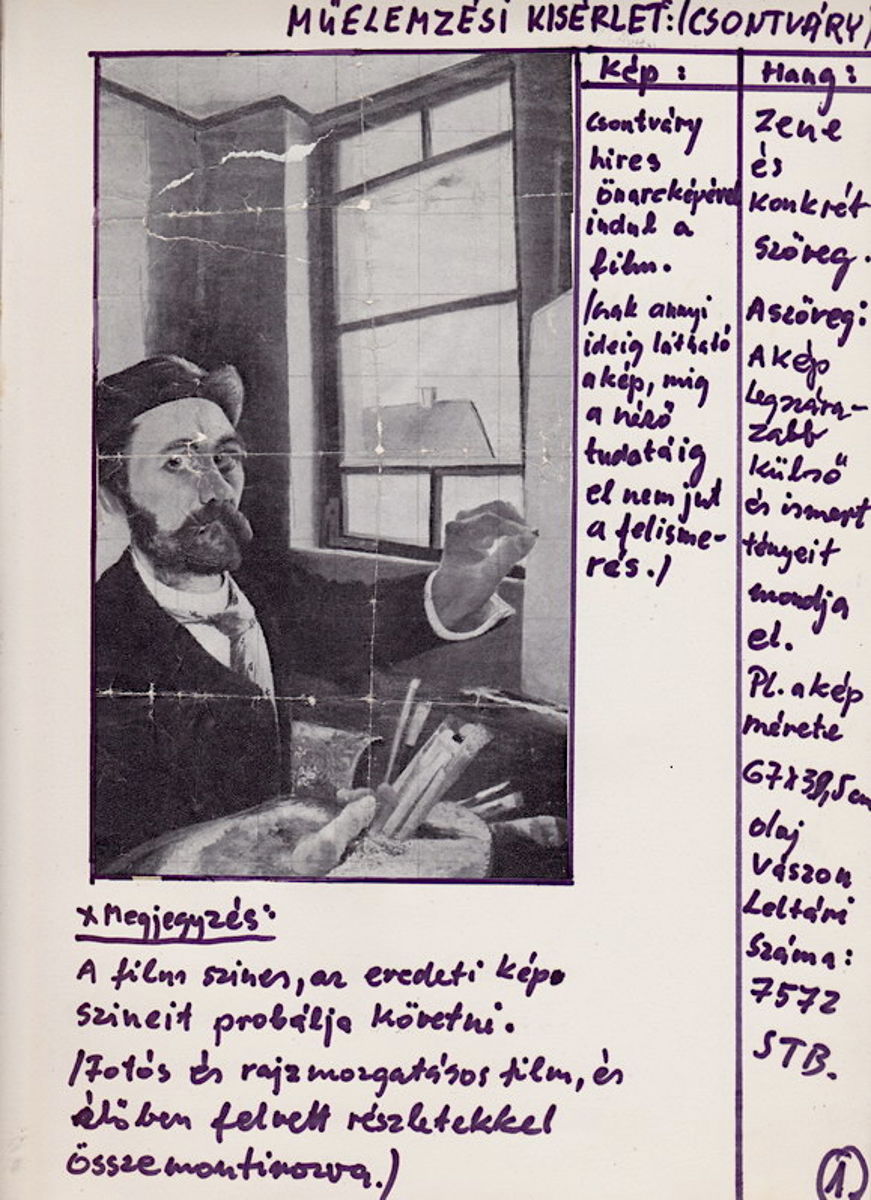 MŰELEMZÉSI KISÉRLET:/(CSONTVÁRY)
Kép:
Csontváry
hires
önarcképével
indul a
film.
/Csak annyi
ideig látható
a kép, mig
a néző
tudatáig
el nem jut
a felisme-
rés./
Hang:
Zene
és
konkrét
szöveg.
A szöveg:
A kép
legszára-
zabb
külső
és ismert
tényeit
mondja
el.
Pl. a kép
mérete
67X39,5cm
olaj
vászon
Leltári
száma:
7572
STB.
x Megjegyzés:
A film szines, az eredeti kép
szineit probálja követni.
/Fotós és rajzmozgatásos film, és
élőben felvett részletekkel
összemontirozva./
1